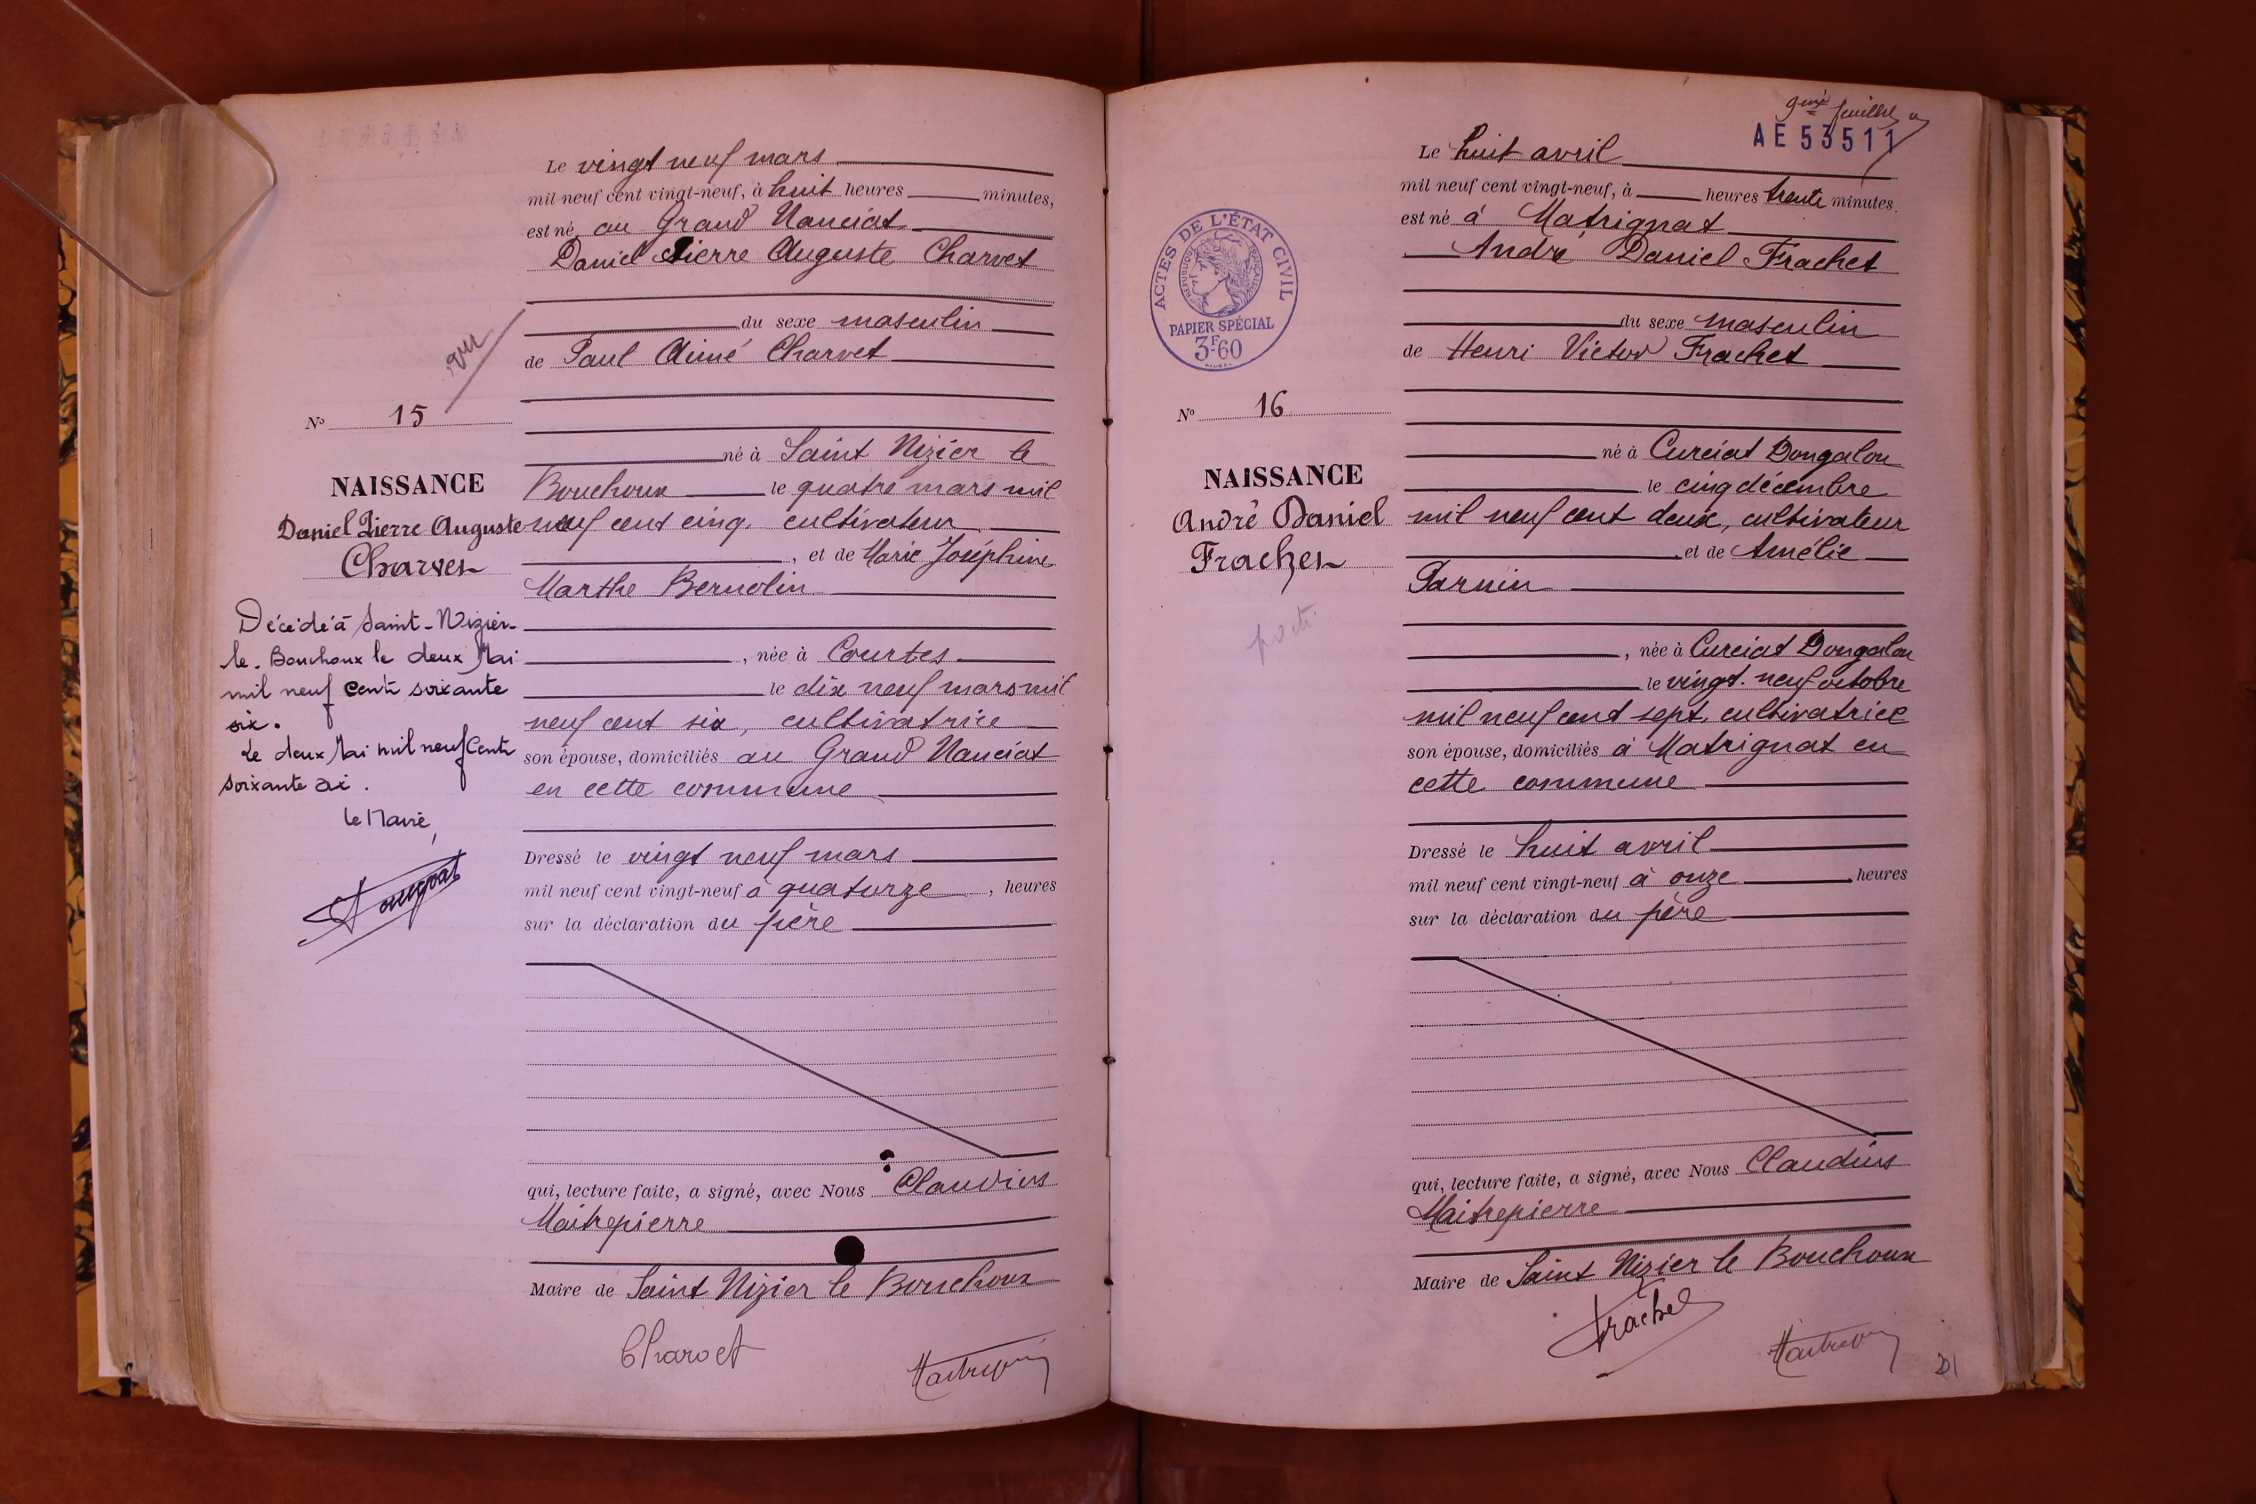 Le vingt neuf mars
mil neuf cent vingt-neuf, à huit heures minutes,
est né au Grand Nanciat
Daniel Pierre Auguste Charvet
du sexe masculin
de Paul Aimé Charvet
né à Saint Nizier le
Bouchoux le quatre mars mil
neuf cent cinq, cultivateur
, et de Marie Joséphine
Marthe Bernolin
, née à Courtes
le dix neuf mars mil
neuf cent six, cultivatrice
son épouse, domiciliés au Grand Nanciat
en cette commune
Dressé le vingt neuf mars
mil neuf cent vingt-neuf à quatorze, heures
sur la déclaration du père
qui, lecture faite, a signé, avec Nous Claudius
Maitrepierre
Maire de Saint Nizier le Bouchoux
Charvet
No 15
NAISSANCE
Daniel Pierre Auguste
Charvet
Décédé à Saint-Nizier-
le-Bouchoux le deux Mai
mil neuf cent soixante
six.
Le deux Mai mil neuf Cent
soixante six.
le Maire,
9me feuillet
AE 53511
Le huit avril
mil neuf cent vingt-neuf, à heures trente minutes.
est né à Matrignat
André Daniel Frachet
du sexe masculin
de Henri Victor Frachet
né à Curciat Dongalon
le cinq décembre
mil neuf cent deux, cultivateur
et de Amélie
Parnin
, née à Curciat Dongalon
le vingt-neuf octobre
mil neuf cent sept, cultivatrice
son épouse, domiciliés à Matrignat en
cette commune
Dressé le huit avril
mil neuf cent vingt-neuf à onze heures
sur la déclaration du père
qui, lecture faite, a signé, avec Nous Claudius
Maitrepierre
Maire de Saint Nizier le Bouchoux
Frachet
ACTES DE L'ÉTAT CIVIL
RÉPUBLIQUE FRANÇAISE
PAPIER SPÉCIAL
3F.60
No 16
NAISSANCE
André Daniel
Frachet